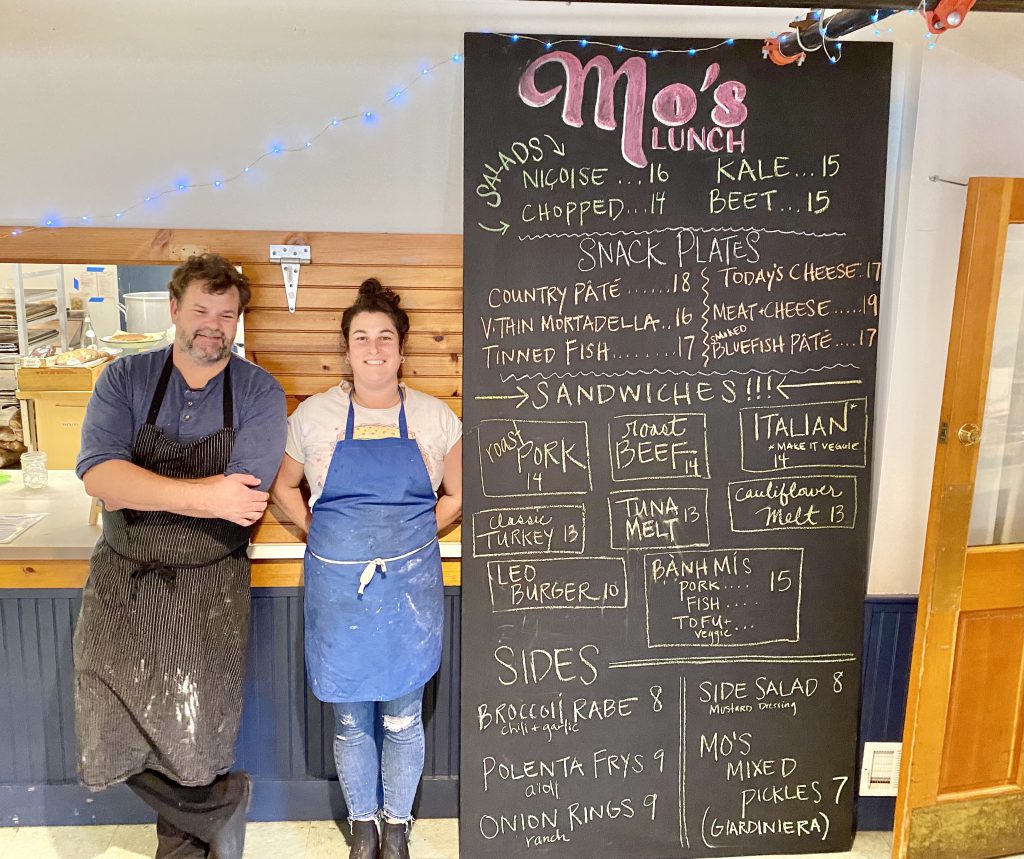 Mo's
LUNCH
SALADS
NIÇOISE ... 16
CHOPPED... 14
KALE... 15
BEET... 15
SNACK PLATES
COUNTRY PÂTE ...... 18
V. THIN MORTADELLA.. 16
TINNED FISH........ 17
TODAY'S CHEESE. 17
MEAT + CHEESE ..... 19
SMOKED
BLUEFISH PATE.... 17
SANDWICHES!!!
roast
PORK
14
roast
BEEF
14
ITALIAN*
* MAKE IT VEGGIE
14
classic
TURKEY 13
TUNA
MELT 13
Cauliflower
Melt 13
LEO
BURGER 10
BÀNH MÍS 15
PORK ....
FISH .....
TOFU + ...
veggie
SIDES
BROCCOLI RABE 8
chili + garlic
POLENTA FRYS 9
aioli
ONION RINGS 9
ranch
SIDE SALAD 8
MUSTARD Dressing
MO'S
MIXED
PICKLES 7
(GIARDINIERA)